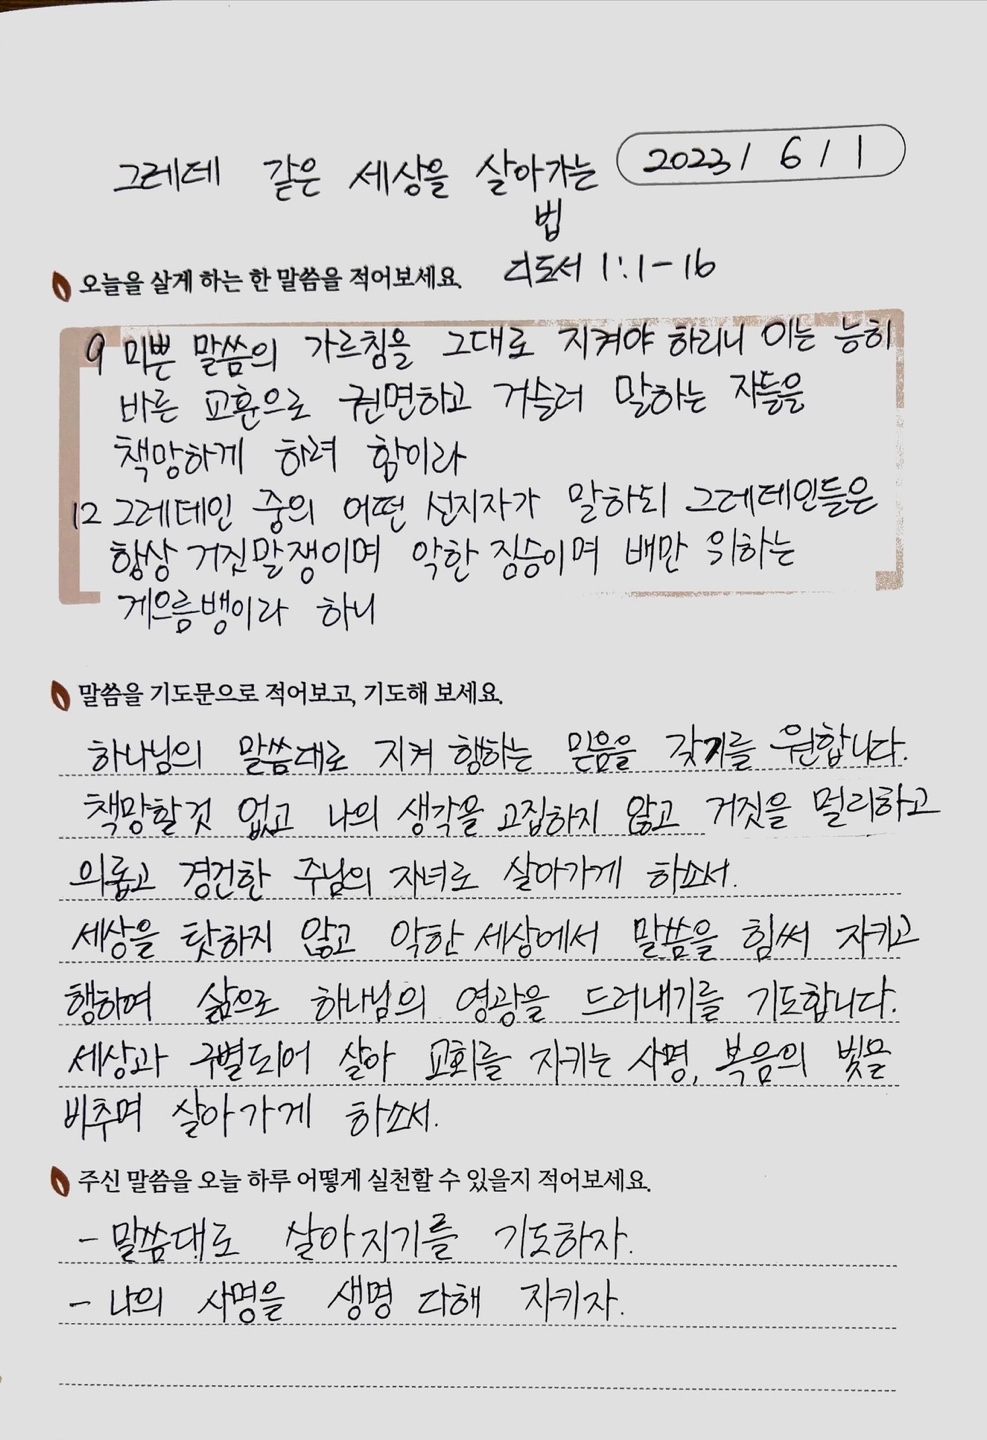 그레데 같은 세상을 살아가는 2023 / 6 / 1
법
오늘을 살게 하는 한 말씀을 적어보세요. 디도서 1:1-16
9 미쁜 말씀의 가르침을 그대로 지켜야 하리니 이는 능히
바른 교훈으로 권면하고 거슬러 말하는 자들을
책망하게 하려 함이라
12 그레데인 중의 어떤 선지자가 말하되 그레데인들은
항상 거짓말쟁이며 악한 짐승이며 배만 위하는
게으름뱅이라 하니
말씀을 기도문으로 적어보고, 기도해 보세요.
하나님의 말씀대로 지켜 행하는 믿음을 갖기를 원합니다.
책망할것 없고 나의 생각을 고집하지 않고 거짓을 멀리하고
의롭고 경건한 주님의 자녀로 살아가게 하소서.
세상을 탓하지 않고 악한 세상에서 말씀을 힘써 지키고
행하여 삶으로 하나님의 영광을 드러내기를 기도합니다.
세상과 구별되어 살아 교회를 지키는 사명, 복음의 빛을
비추며 살아가게 하소서.
주신 말씀을 오늘 하루 어떻게 실천할 수 있을지 적어보세요.
- 말씀대로 살아지기를 기도하자.
- 나의 사명을 생명 다해 지키자.